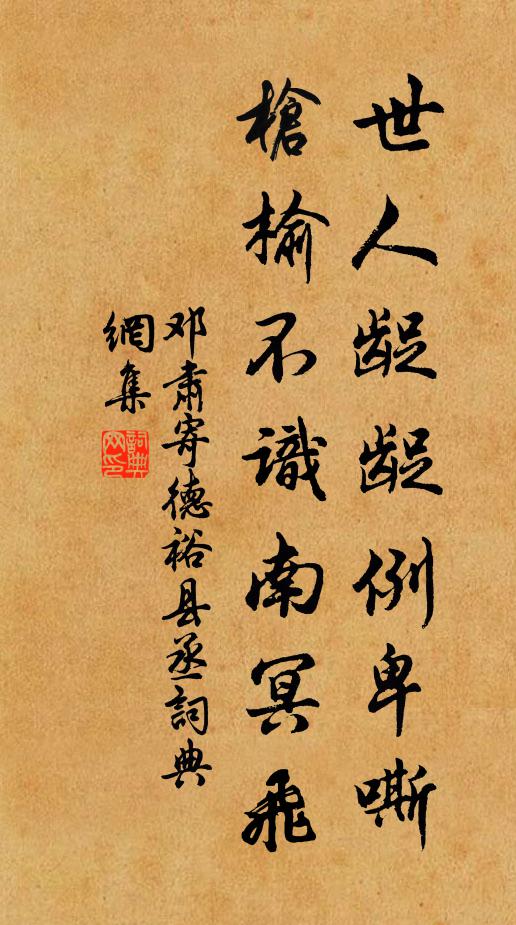 世人齪齪例卑嘶
槍榆不識南冥飛
邓肅寄德裕县丞詞典
網集
詞典網印